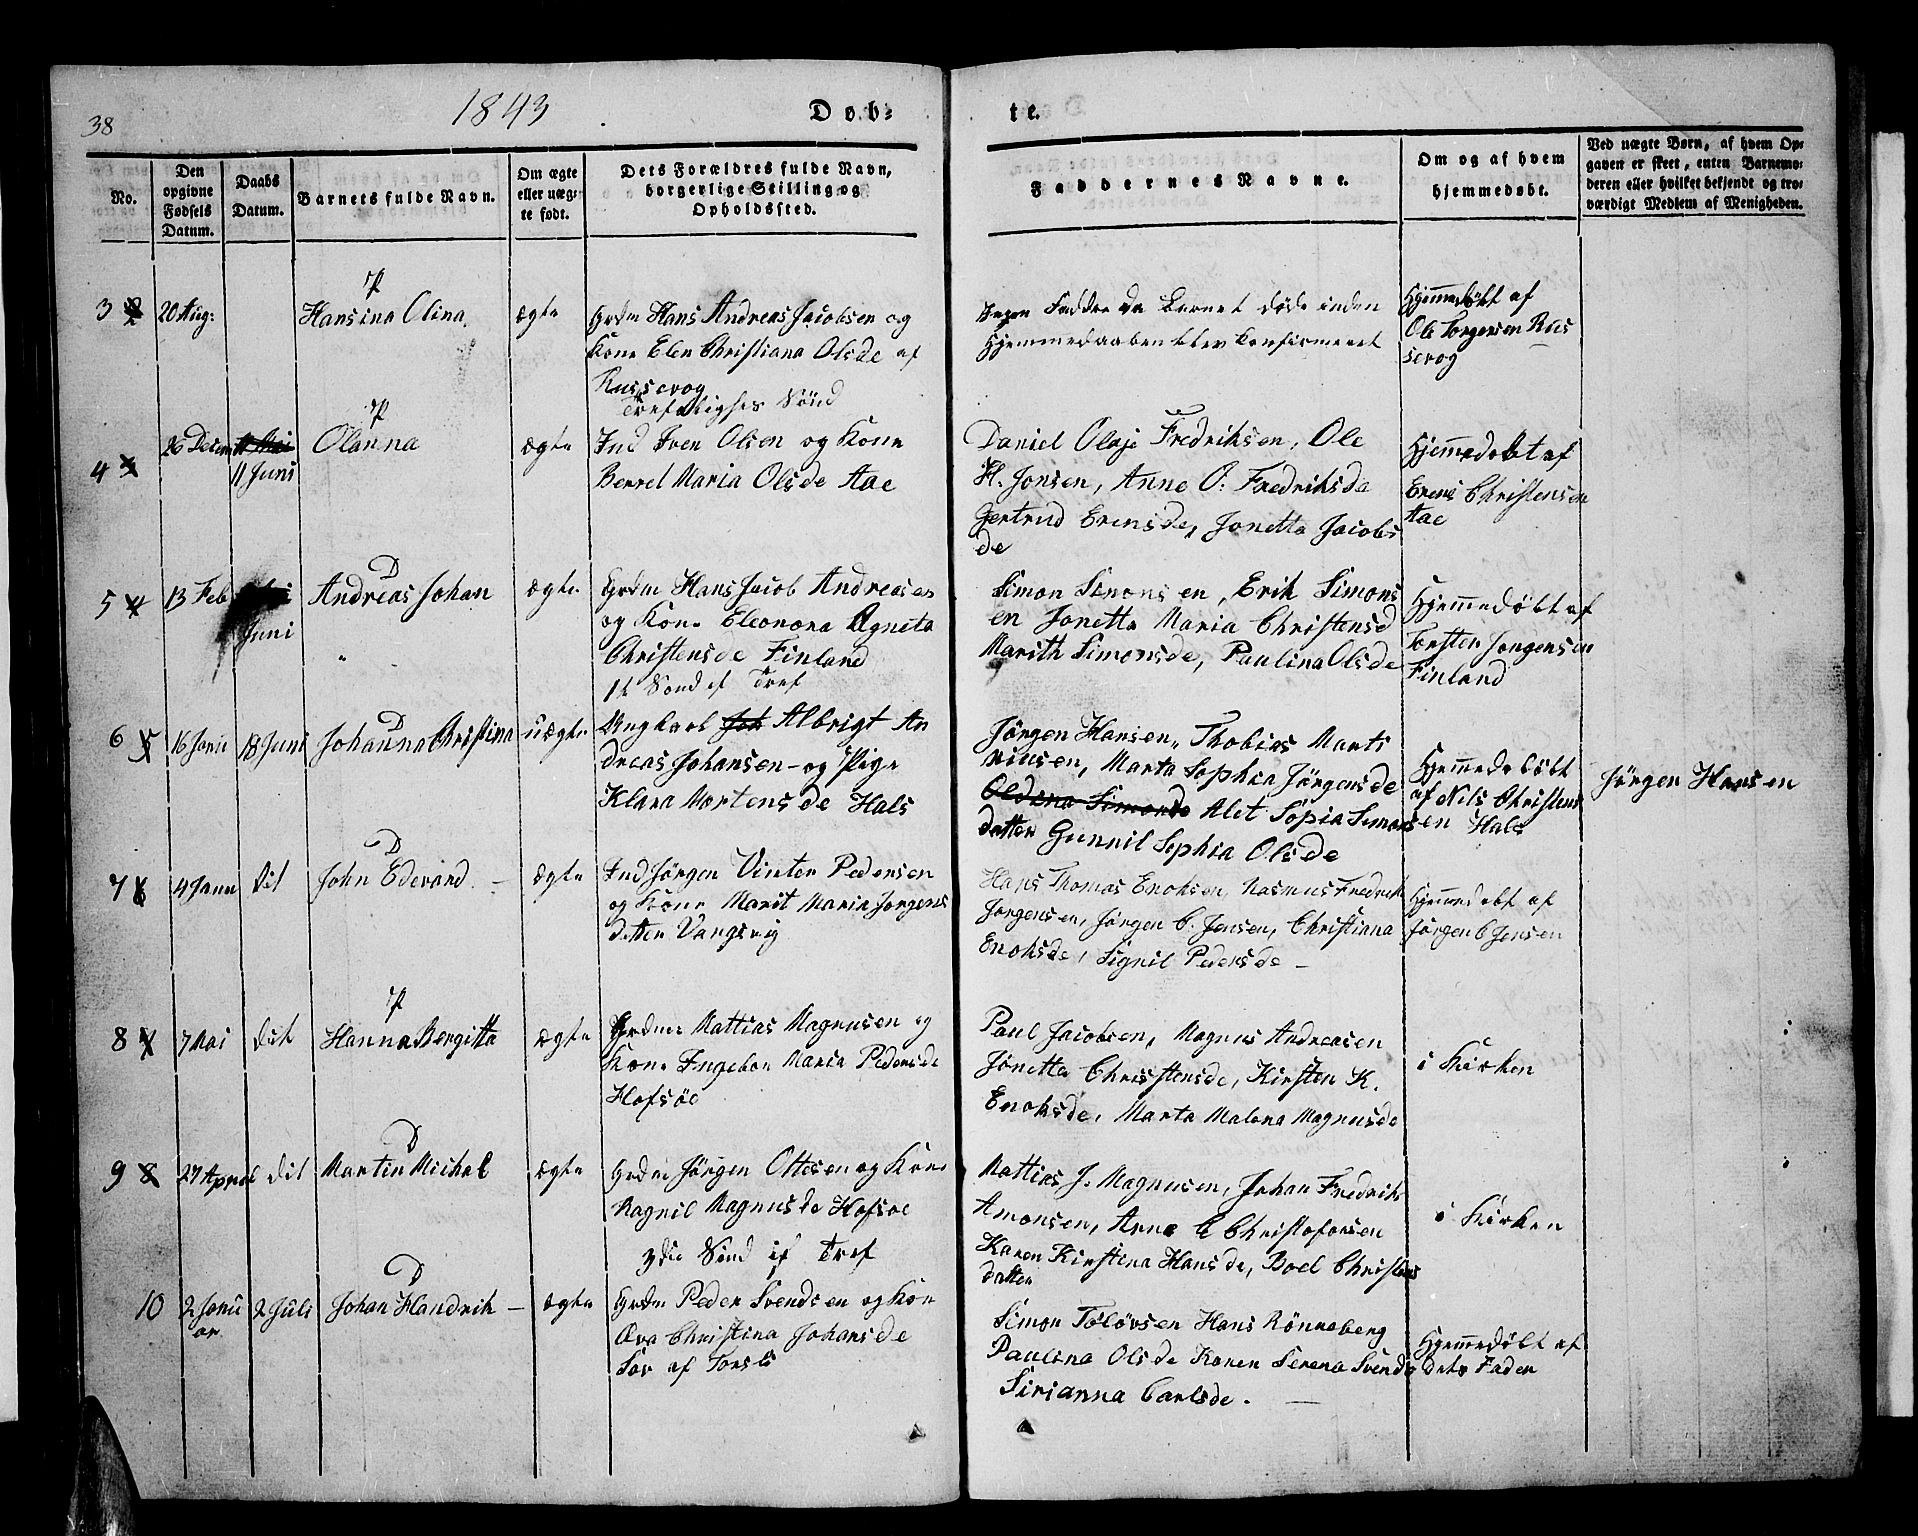 38
1843
Døb-
te.
No.
Den opgivne Fødsels Datum.
Daabs Datum.
Barnets fulde Navn.
Om ægte eller uægte født.
Dets Forældres fulde Navn, borgerlige Stilling og Opholdssted.
Faddernes Navne.
Om og af hvem hjemmedøbt.
Ved uægte Børn, af hvem Opgaven er skeet, enten Barnemoderen eller hvilket bekjendt og troværdigt Medlem af Menigheden.
P
3 20 Aug: Hansina Olina ægte
Hans Andreas Jacobsen og
Kone Elen Christiana Olsde af
Russevog
døde inden
Hjemmedaaben blev Confirmeret
Hjemmedøbt af
Ole Torgersen Rus
sevog
Sönd
P
4 26 Decem 11 Juni Olanna ægte
Ind Iver Olsen og Kone
Berret Maria Olsde Aae
Daniel Olaje Fredriksen, Ole
H. Jonsen, Anne O. Fredriksde
Gertrud Erensde, Jonetta Jacobs
de
Hjemmedøbt af
Erens Christensen
Aae
D
5 4 13 Feb Juni Andreas Johan ægte
Hans Jacob Andreasen
og Kone Eleonora Agneta
Christensde Finland
Simon Simonsen, Erik Simons
en Jonetta Maria Christensd
Marith Simonsde, Paulina Olsde
Hjemmedøbt af
Torsten Jorgensen
Finland
1t Sønd ef Tref
D
6 5 16 Janu 18 Juni Johanna Christina uægte
Ungkarl Joh Albrigt An
dreas Johansen - og Pige
Klara Mortensde Hals
Jørgen Hansen, Thobias Marti
niusen, Marta Sophia Jørgensde
Oldina Simonsde Alet Sopia Simons
datter Gunnil Sophia Olsde
Hjemmedøbt
af Nils Christens
en Hals
Jørgen Hansen
D
7 6 4 Janu dit John Edevard - ægte
Ind Jørgen Vinter Pedersen
og Kone Marit Maria Jørgens
datter Vangsvig
Hans Thomas Enoksen, Rasmus Fredrik
Jørgensen, Jørgen C. Jensen, Christiana
Enoksde, Signil Pedersde -
Hjemmedøbt af
Jørgen C Jensen
P
8 7 7 Mai dit Hanna Bergitta ægte
Mattias Magnusen og
Kone Ingebor Maria Pedersde
Hofsøe
Paul Jacobsen, Magnus Andreasen
Jonetta Christensde, Kirsten K.
Enoksde, Marta Malena Magnusde
i Kirken
D
9 8 27 April dit Martin Michal ægte
Jørgen Ottesen og Kone
Ragnil Magnusde Hofsøe
Mattias J. Magnusen, Johan Fredrik
Amonsen, Arne C Christofersen
Karen Kirstina Hansde, Boel Christens
datter
i Kirken
3die Sönd ef Tref
D
10 2 Janu
ar 2 Juli Johan Handrik - ægte
Peder Svendsen og Kone
Christina Johansde
af Torsli
Simon Toløvsen Hans Rönneberg
Paulina Olsde Karen Serena Svendsde
Sirianna Carlsde. -
Hjemmedøbt af
dets Fader